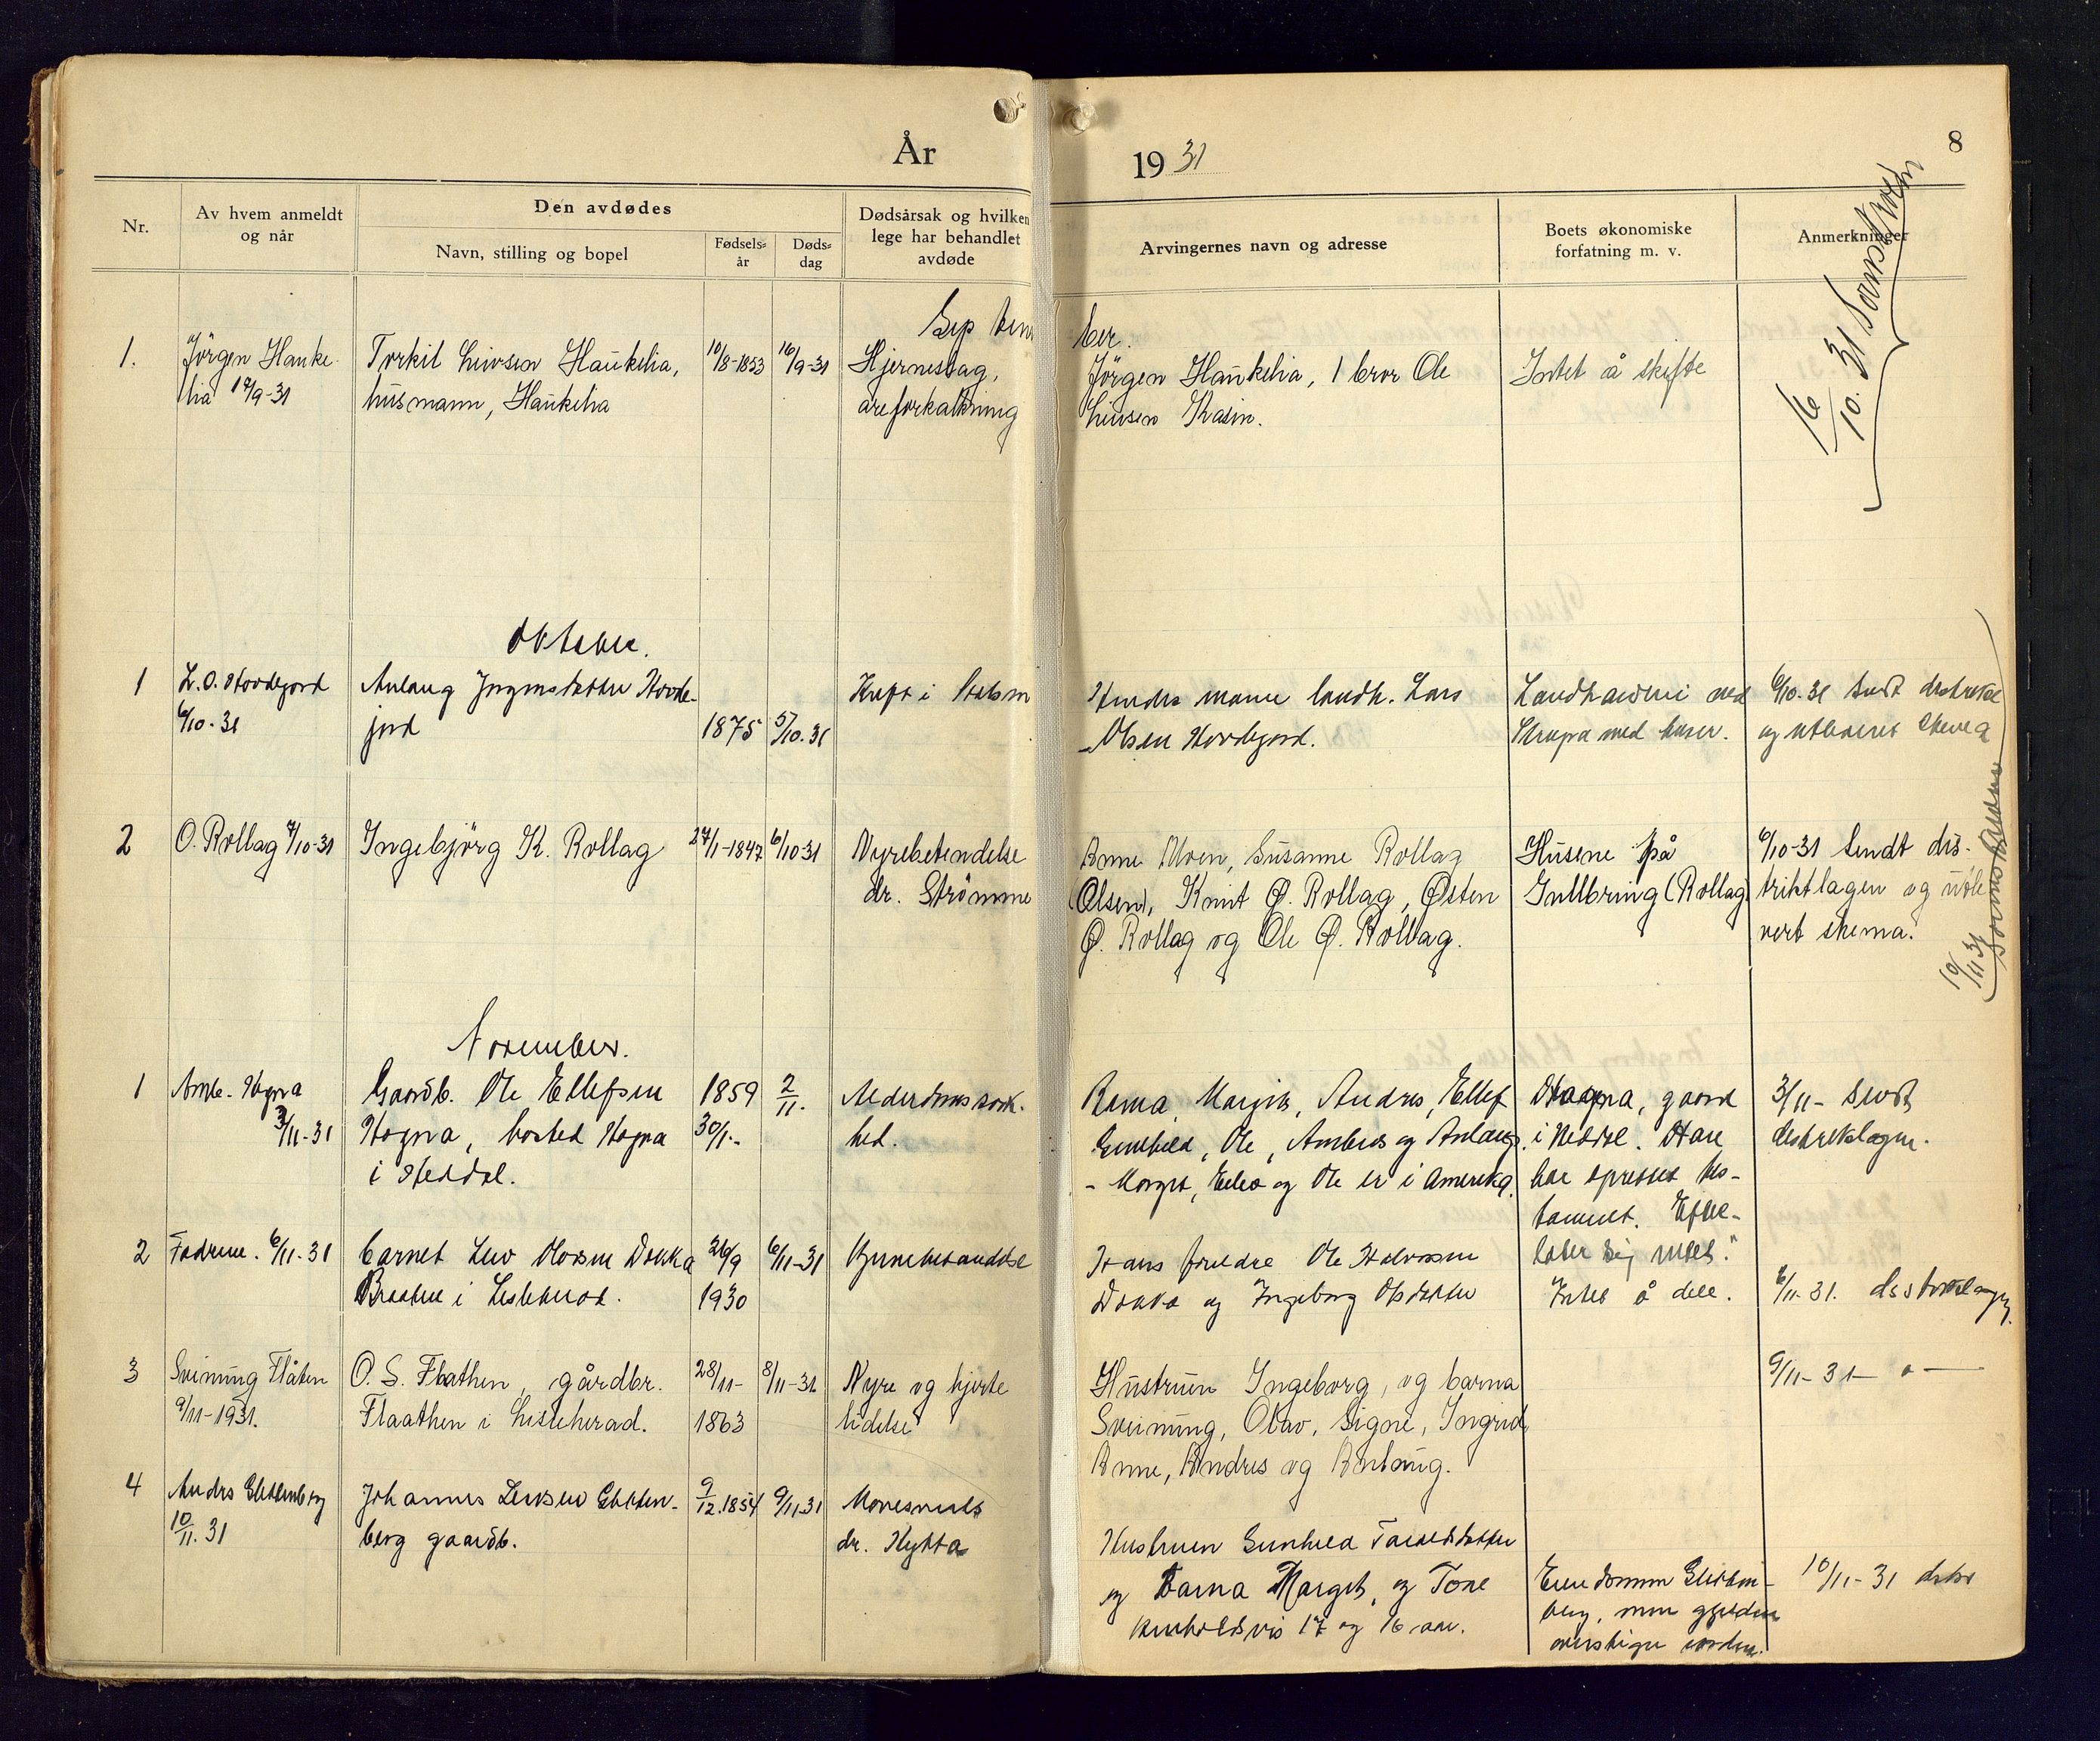 År
19 31
8
Nr.
Av hvem anmeldt
og når
Den avdødes
Navn, stilling og bopel
Fødsels-
år
Døds-
dag
Dødsårsak og hvilken
lege har behandlet
avdøde
Arvingernes navn og adresse
Boets økonomiske
forfatning m. v.
Anmerkninger
September.
1.
Jörgen Hauke-
lia 17/9-31
Torkil Livsen Haukelia,
husmann, Haukelia
10/8-1853
16/9-31
Hjerneslag,
åreforkalkning
Jörgen Haukelia, 1 bror Ole
Livsen Kasin.
Intet å skifte
16/10. 31
Oktober.
1
L. O. Hovdejord
6/10-31
Aulaug Jørgensdatter Hovde-
jord
1875
5/10.31
Kreft i
Hendes mann landh. Lars
Olsen Hovdejord.
Landhandleri med
Krupa med huser.
6/10.31 Sendt
og utleveret skema
2
O. Rollag 7/10-31
Ingebjörg K. Rollag
27/1-1847
6/10-31
Nyrebetendelse
dr. Strömme
Anne Moen, Susanne Rollag
(Olsen), Knut Ø. Rollag, Østen
Ø. Rollag og Ole Ø. Rollag.
Husene på
Gullbring (Rollag)
6/10-31 Sendt dis-
triktlagen og utle-
vert skema.
10/11 31
November.
1
Amb. Hogna
3/11-31
Gaardb. Ole Ellefsen
Hogna, bosted Hogna
i Heddal.
1859
30/1-
2/11.
Alderdomssvak-
hed.
Margit, Andres, Ellef
Gunhild, Ole, Ambros og Aulaug.
- Margit, Ellef og Ole er i Amerika.
Hogna, gaard
i Heddal. Han
har oprettet tes-
tament. Efter-
later sig intet."
3/11- Sendt
distriktslagen.
2
Fadren. 6/11-31
barnet Liv Olavsen Dokka
Braaten i Lisleherad.
26/9
1930
6/11-31
Hans foreldre Ole Halvorsen
Dokka og Ingeborg Olsdatter
Intet å dele.
6/11-31.
3
Sveinung Flåten
9/11-1931.
O. S. Flaathen, gårdbr.
Flaathen i Lisleherad.
28/11-
1863
8/11-31
Nyre og hjerte
lidelse
Hustruen Ingeborg, og barna
Sveinung, Olav, Signe, Ingrid,
Anne, Andres og Aslaug.
9/11-31 - " -
4
10/11.31
Johannes Leivsen
berg gaardb.
9/12.1854
9/11-31
dr. Hytta
Hustruen Gunhild
og Barna Margit, og Tone
henholdsvis 17 og 16 aar.
Eiendommen
berg, men gjelden
overstiger verdien.
10/11-31